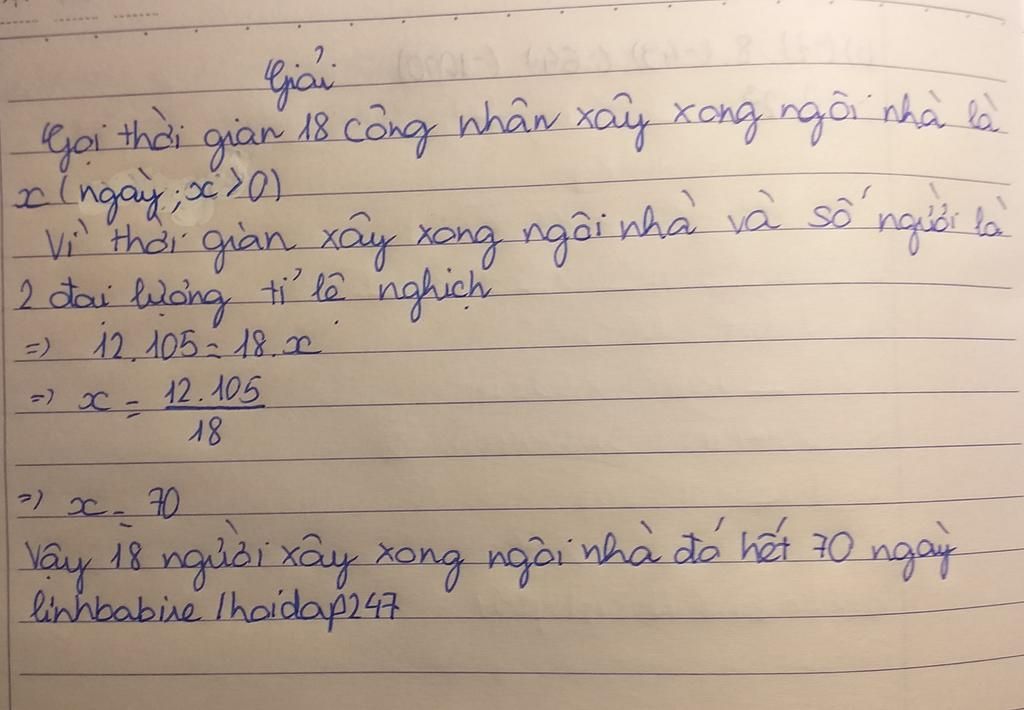 Giải
Gọi thời gian 18 công nhân xây xong ngôi nhà là
x (ngày; x > 0)
Vì thời gian xây xong ngôi nhà và số người là
2 đại lượng tỉ lệ nghịch
=> 12.105 = 18.x
=> x = 12.105 / 18
=> x = 70
Vậy 18 người xây xong ngôi nhà đó hết 70 ngày
linhbabine / hoidap247